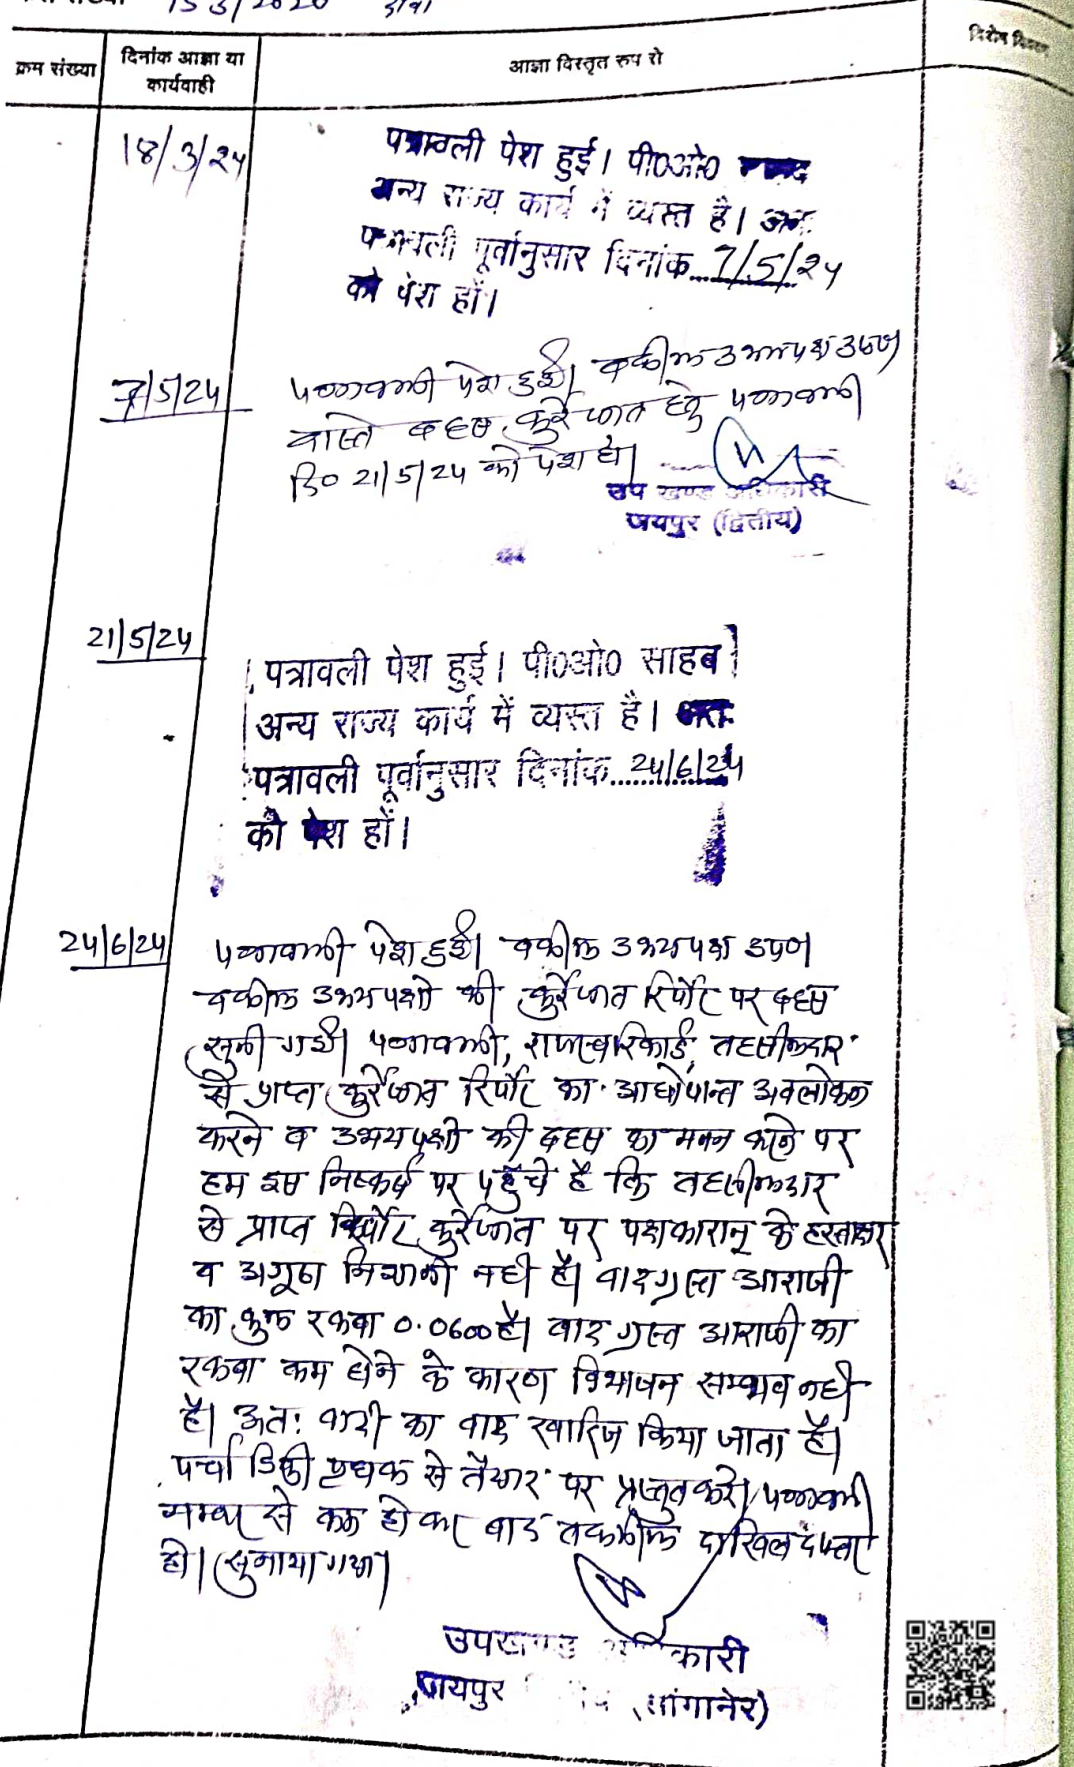 153/2020 दावा
क्रम संख्या
दिनांक आज्ञा या
कार्यवाही
आज्ञा विस्तृत रुप से
विशेष विवरण
18/3/24
पत्रावली पेश हुई। पी०ओ०
अन्य राज्य कार्य में व्यस्त है। अतः
पत्रावली पूर्वानुसार दिनांक 7/5/24
को पेश हों।
7/5/24
पत्रावली पेश हुई। वकील उभयपक्ष उप०
वास्ते बहस कुर्रेजात हेतु पत्रावली
दि० 21/5/24 को पेश हो।
उप खण्ड अधिकारी
जयपुर (द्वितीय)
21/5/24
पत्रावली पेश हुई। पी०ओ० साहब
अन्य राज्य कार्य में व्यस्त है। अतः
पत्रावली पूर्वानुसार दिनांक 24/6/24
को पेश हों।
24/6/24
पत्रावली पेश हुई। वकील उभयपक्ष उप०
वकील उभयपक्षो की कुर्रेजात रिपोर्ट पर बहस
सुनी गई। पत्रावली, राजस्व रिकार्ड, तहसीलदार
से प्राप्त कुर्रेजात रिपोर्ट का आधोपान्त अवलोकन
करने व उभयपक्षो की बहस का मनन करने पर
हम इस निष्कर्ष पर पहुँचे है कि तहसीलदार
से प्राप्त रिपोर्ट कुर्रेजात पर पक्षकारान् के हस्ताक्षर
व अगूठा निशानी नही है। वादग्रस्त आराजी
का कुल रकबा 0.0600 है। वादग्रस्त आराजी का
रकबा कम होने के कारण विभाजन सम्भव नही
है। अतः वादी का वाद खारिज किया जाता है।
पर्चा डिक्री पृथक से तैयार कर प्रस्तुत करे। पत्रावली
नम्बर से कम हो कर बाद तकमील दाखिल दफ्तर
हो। सुनाया गया।
उपखण्ड अधिकारी
जयपुर (सांगानेर)